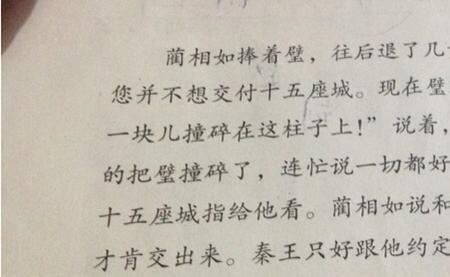 蔺相如捧着璧，往后退了几
您并不想交付十五座城。现在璧
一块儿撞碎在这柱子上！”说着，
的把璧撞碎了，连忙说一切都好
十五座城指给他看。蔺相如说和
才肯交出来。秦王只好跟他约定